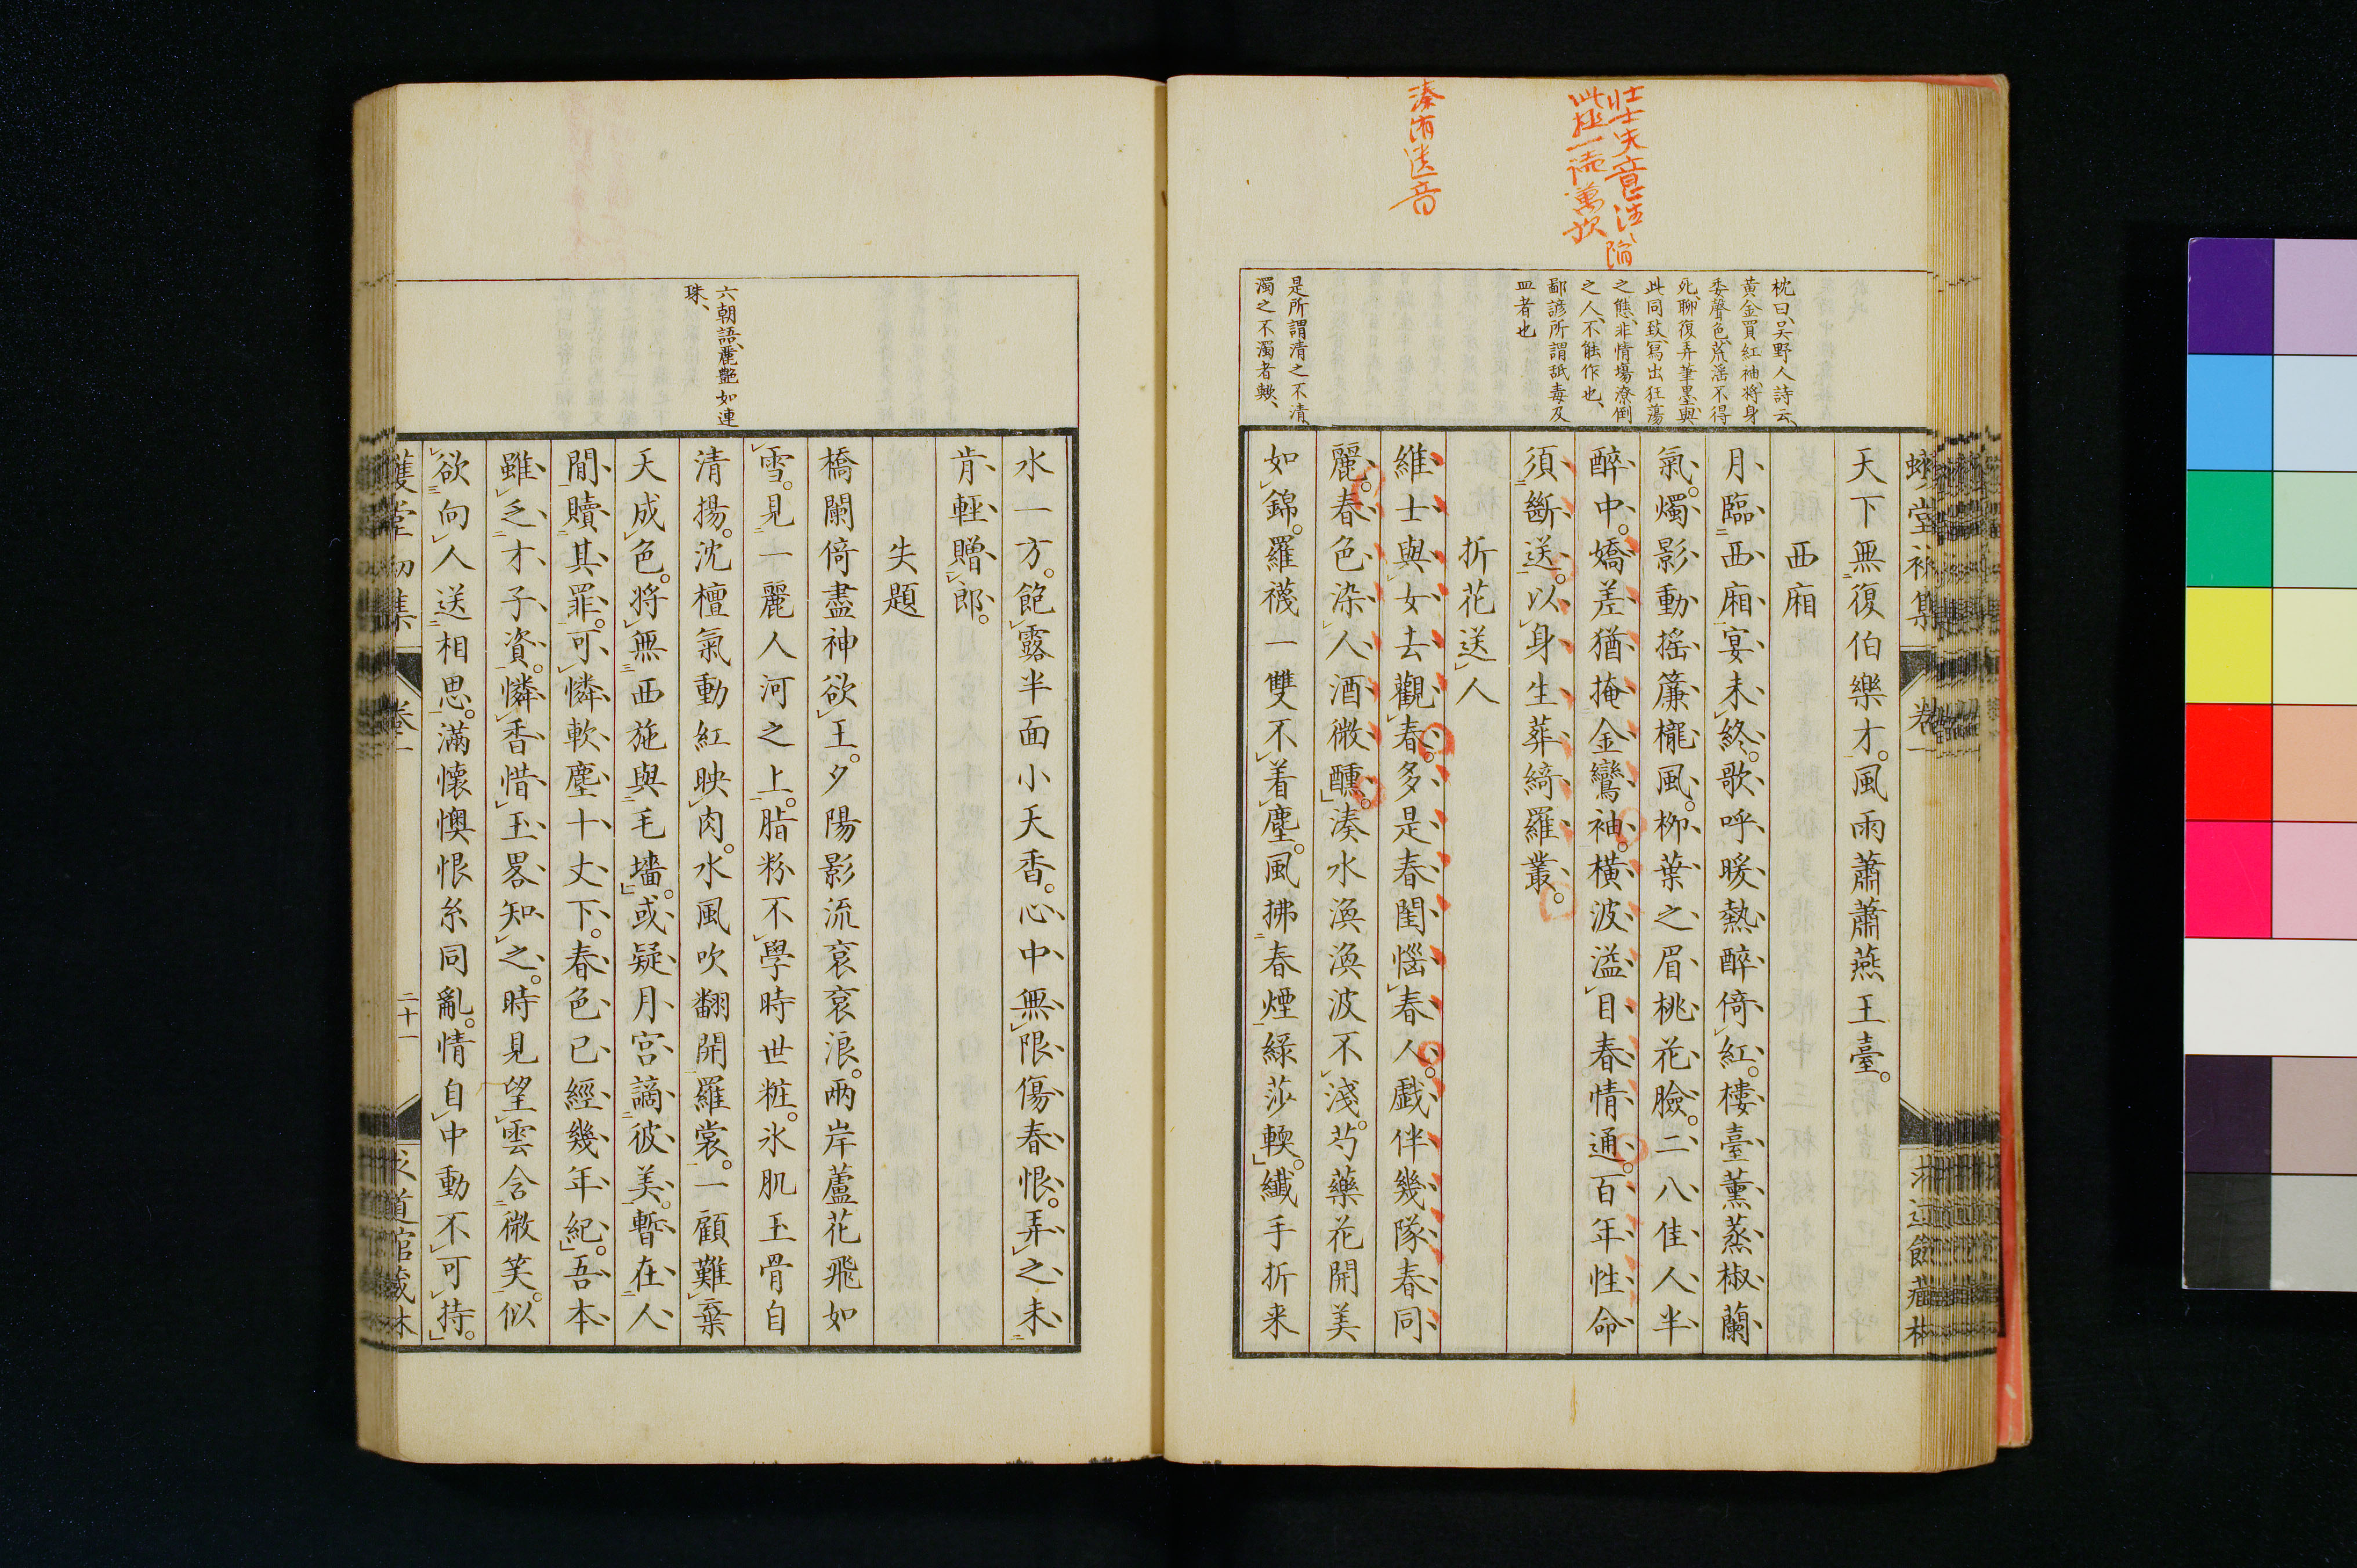 溱洧遺音
此一讀萬
枕曰、吴野人詩云、
黄金買紅袖、将身
委聲色、荒滛不得
死、聊復弄筆墨、與
此同致、寫出狂蕩
之態、非情場潦倒
之人、不能作也、
鄙諺所謂舐毒及
皿者也
是所謂清之不清、
濁之不濁者歟、
天下無復伯樂才。風雨蕭蕭燕王臺。
西廂
月臨西廂宴未終。歌呼暖熱醉倚紅。樓臺薰蒸椒蘭
氣。燭影動摇簾櫳風。柳葉之眉桃花臉。二八佳人半
醉中。嬌差猶掩金鸞袖。橫波溢目春情通。百年性命
須斷送。以身生葬綺羅叢。
折花送人
維士與女去觀春。多是春閨惱春人。戯伴幾隊春同
麗。春色染人酒微醺。溱水渙渙波不淺。芍藥花開美
如錦。羅襪一雙不着塵。風拂春煙綠莎輭。纖手折来
水一方。飽露半面小天香。心中無限傷春恨。弄之未
肯輕贈郎。
失題
橋闌倚盡神欲王。夕陽影流哀哀浪。兩岸蘆花飛如
雪。見一麗人河之上。脂粉不學時世粧。氷肌玉骨自
清揚。沈檀氣動紅映肉。水風吹翻開羅裳。一顧難棄
天成色。将無西施與毛墻。或疑月宮謫彼美。暫在人
間贖其罪。可憐軟塵十丈下。春色已經幾年紀。吾本
雖乏才子資。憐香惜玉畧知之。時見望雲含微笑。似
欲向人送相思。滿懐懊恨糸同亂。情自中動不可持。
六朝語、麗艶如連
珠、
卷一
二十一